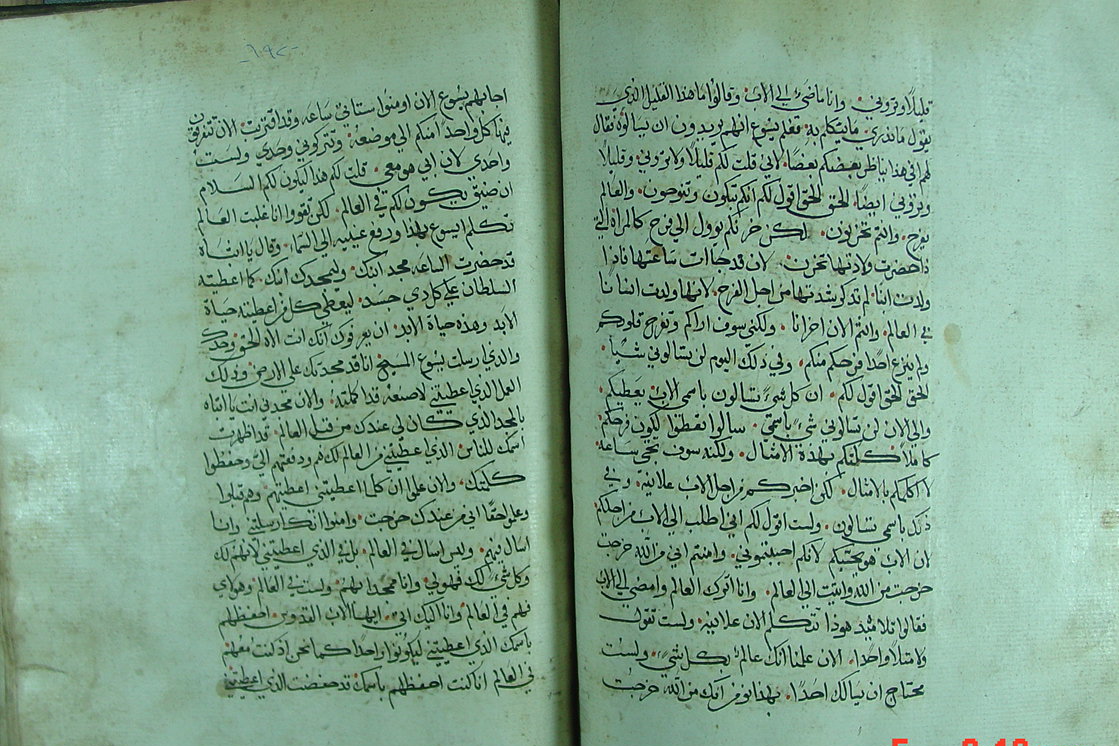 قليلا وتروني. وانا ماضي الى الاب وقالوا ما هذا القليل الذي
يقول ما ندري ما يتكلم به فعلم يسوع انهم يريدون ان يسالوه فقال
لهم افي هذا يناظر بعضكم بعضا. لاني قلت لكم قليلا ولا تروني وقليلا
وتروني ايضا الحق الحق اقول لكم انكم تبكون وتنوحون والعالم
يفرح وانتم تحزنون. لكن حزنكم يوول الى فرح كالمراة التي
اذا حضرت ولادتها تحزن لان قد جاات ساعتها فاذا
ولدت ابنا لم تذكر شدتها من اجل الفرح لانها ولدت انسانا
في العالم وانتم الان احزانا ولكني سوف اراكم وتفرح قلوبكم
ولم ينزع احدا فرحكم منكم وفي ذلك اليوم لن تسالوني شيا
الحق الحق اقول لكم ان كل شي تسالون باسمي الاب يعطيكم
والى الان لن تسالوني شي باسمي سالوا تعطوا لكون فرحكم
كاملا كلمتكم بهذه الامثال ولكنه سوف تجي ساعة
لا اكلمكم بالامثال لكن اخبركم من اجل الاب علانية وفي
ذلك باسمي تسالون ولست اقول لكم اني اطلب الى الاب من اجلكم
لان الاب هو يحبكم لانكم احببتموني وامنتم اني من الله خرجت
خرجت من الله واتيت الى العالم وانا اترك العالم وامضي الى الاب
فقالوا تلاميذه هوذا تتكلم الان علانية وليست تقول
ولا مثلا واحدا الان علمنا انك عالم بكل شي وليست
محتاج ان يسالك احدا. بهذا نومن انك من الله خرجت
اجابهم يسوع الان اومنوا ستاتي ساعة وقد اقتربت الان تتفرقون
فيها كل واحدا منكم الى موضعه وتتركوني وحدي وليست
واحدي لان ابي هو معي قلت لكم هذا ليكون لكم السلام
ان ضيق يكون لكم في العالم لكن تقووا انا غلبت العالم
تكلم ايسوع بهذا ورفع عينيه الى السما وقال يا ابتاه
قد حضرت الساعة مجد ابنك وليمجدك ابنك كما اعطيته
السلطان على كل ذي جسد ليعطي كل من اعطيته حياة
الابد وهذه حياة الابد ان يعرفوك انك انت الاه الحق وحدك
والذي ارسلت يسوع المسيح انا قد مجدتك على الارض وذلك
العمل الذي اعطيتني لاصنعه قد اكملته والان مجدني انت يا ابتاه
بالمجد الذي كان لي عندك من قبل العالم قد اظهرت
اسمك للناس الذي اعطيتني من العالم لك هم ودفعتهم الي وحفظوا
كلمتك والان علموا ان كلما اعطيتني اعطيتهم وهم قبلوا
وعلموا حقا اني من عندك خرجت وامنوا انك ارسلتني وانا
اسال فيهم وليس اسال في العالم بل في الذي اعطيتني لانهم لك
وكل شي لك فهو لي وانا ممجدا بهم وليست في العالم وهولاي
فهم في العالم وانا اليك اتي ايها الاب القدوس احفظهم
باسمك الذي اعطيتني ليكونوا واحدا كما نحن اذ كنت معهم
في العالم انا كنت احفظهم باسمك قد حفضت الذي اعطيتني